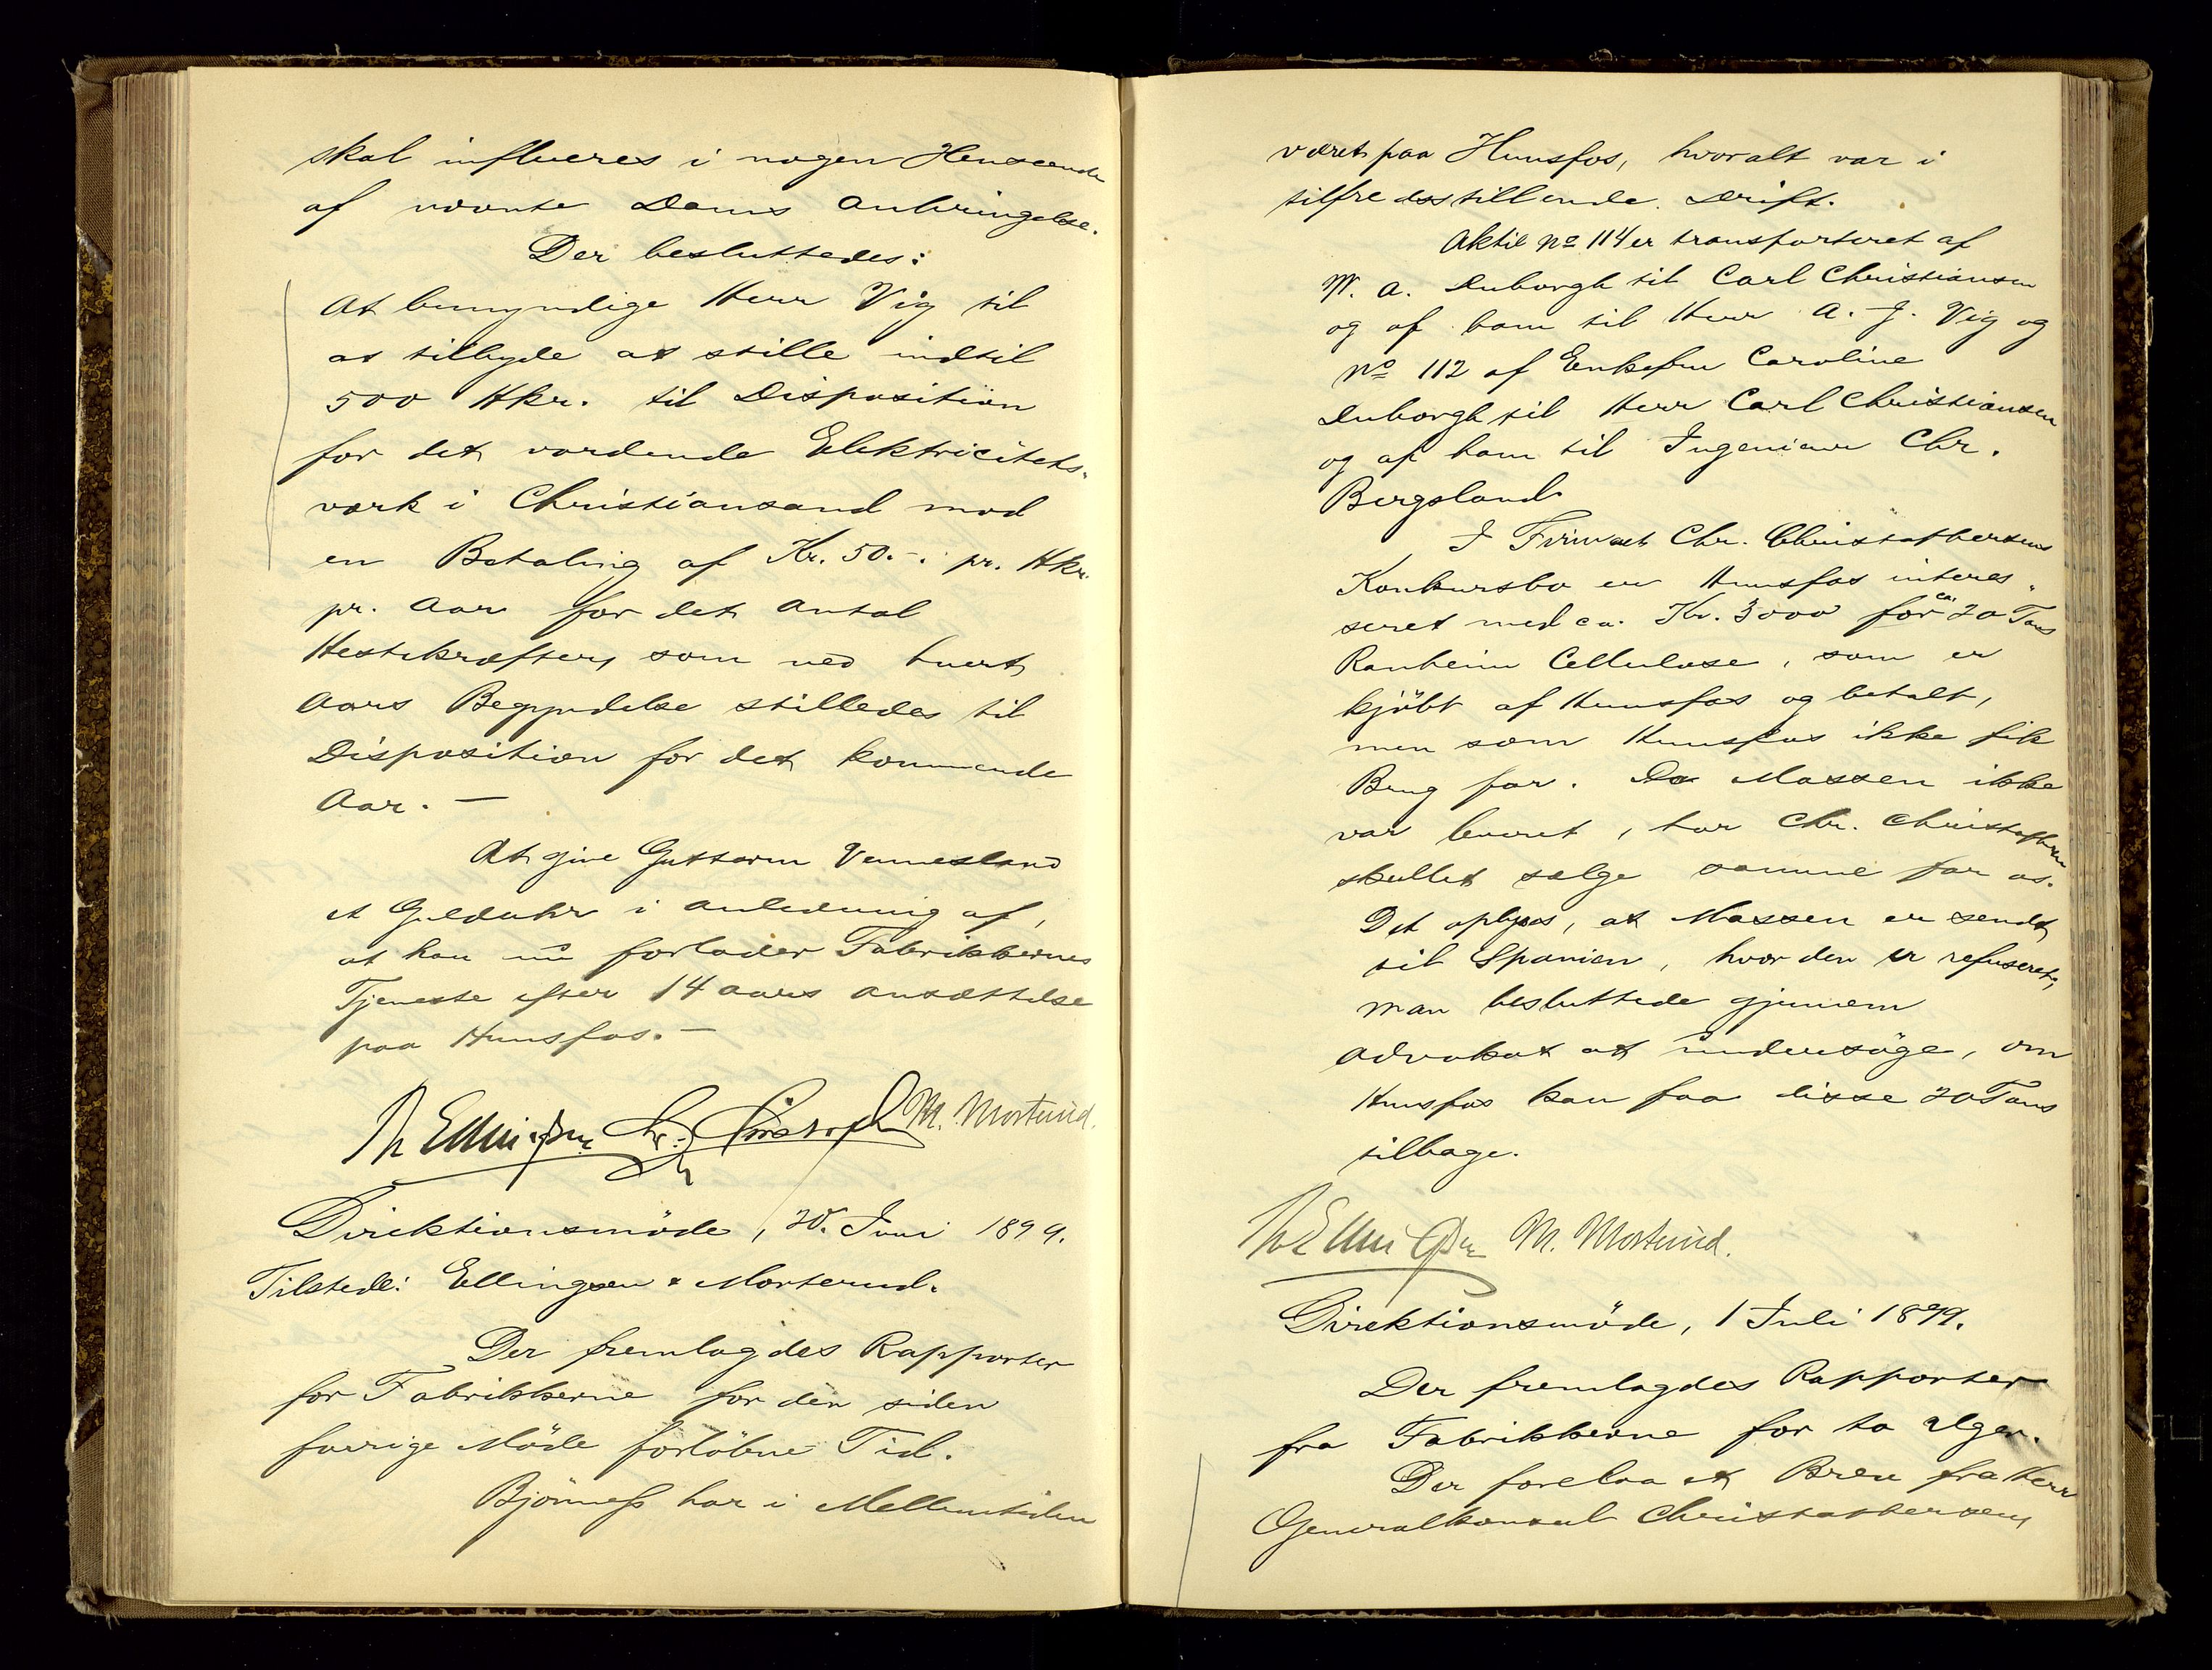 skal influeres i nogen Henseende
af nævnte Dams Anbringelse.
Der besluttedes:
At bemyndige Herr Vig til
at tilbyde at stille indtil
500 Hkr. til Disposition
for det vordende Elektricitets-
værk i Christiansand mod
en Betaling af Kr. 50.-. pr. Hkr.
pr. Aar for det Antal
Hestekræfter, som ved hvert
Aars Begyndelse stilledes til
Disposition for det kommende
Aar. —
At give Guttorm Vennesland
et Gulduhr i Anledning af,
at han nu forlader Fabrikkernes
Tjeneste efter 14 Aars Ansættelse
paa Hunsfos. —
Th Ellingsen Chr. Christoph M. Mosterud.
Direktionsmöde, 20. Juni 1899.
Tilstede: Ellingsen & Morterud.
Der fremlagdes Rapporter
for Fabrikkerne for den siden
forrige Möde forløbne Tid.
Björness har i Mellemtiden
været paa Hunsfos, hvor alt var i
tilfredsstillende Drift.
Aktie No 114 er transporteret af
W. A. Duborgh til Carl Christiansen
og af ham til Herr A. J. Vig og
No 112 af Enkefru Caroline
Duborgh til Herr Carl Christiansen
og af ham til Ingeniør Chr.
Bergsland.
I Firmaet Chr. Christophersens
Konkursbo er Hunsfos interes-
seret med ca. Kr. 3000 for ca. 20 Tons
Ranheim Cellulose, som er
kjöbt af Hunsfos og betalt,
men som Hunsfos ikke fik
Brug for. Da Massen ikke
var leveret, har Chr. Christophersen
skullet sælge samme for os.
Det oplyses, at Massen er sendt
til Spanien, hvor den er refuseret,
man besluttede gjennem
Advokat at undersöge, om
Hunsfos kan faa disse 20 Tons
tilbage.
Th Ellingsen M. Mosterud.
Direktionsmöde, 1 Juli 1899.
Der fremlagdes Rapporter
fra Fabrikkerne for to Uger.
Der forelaa et Brev fra Herr
Generalkonsul Christophersen,